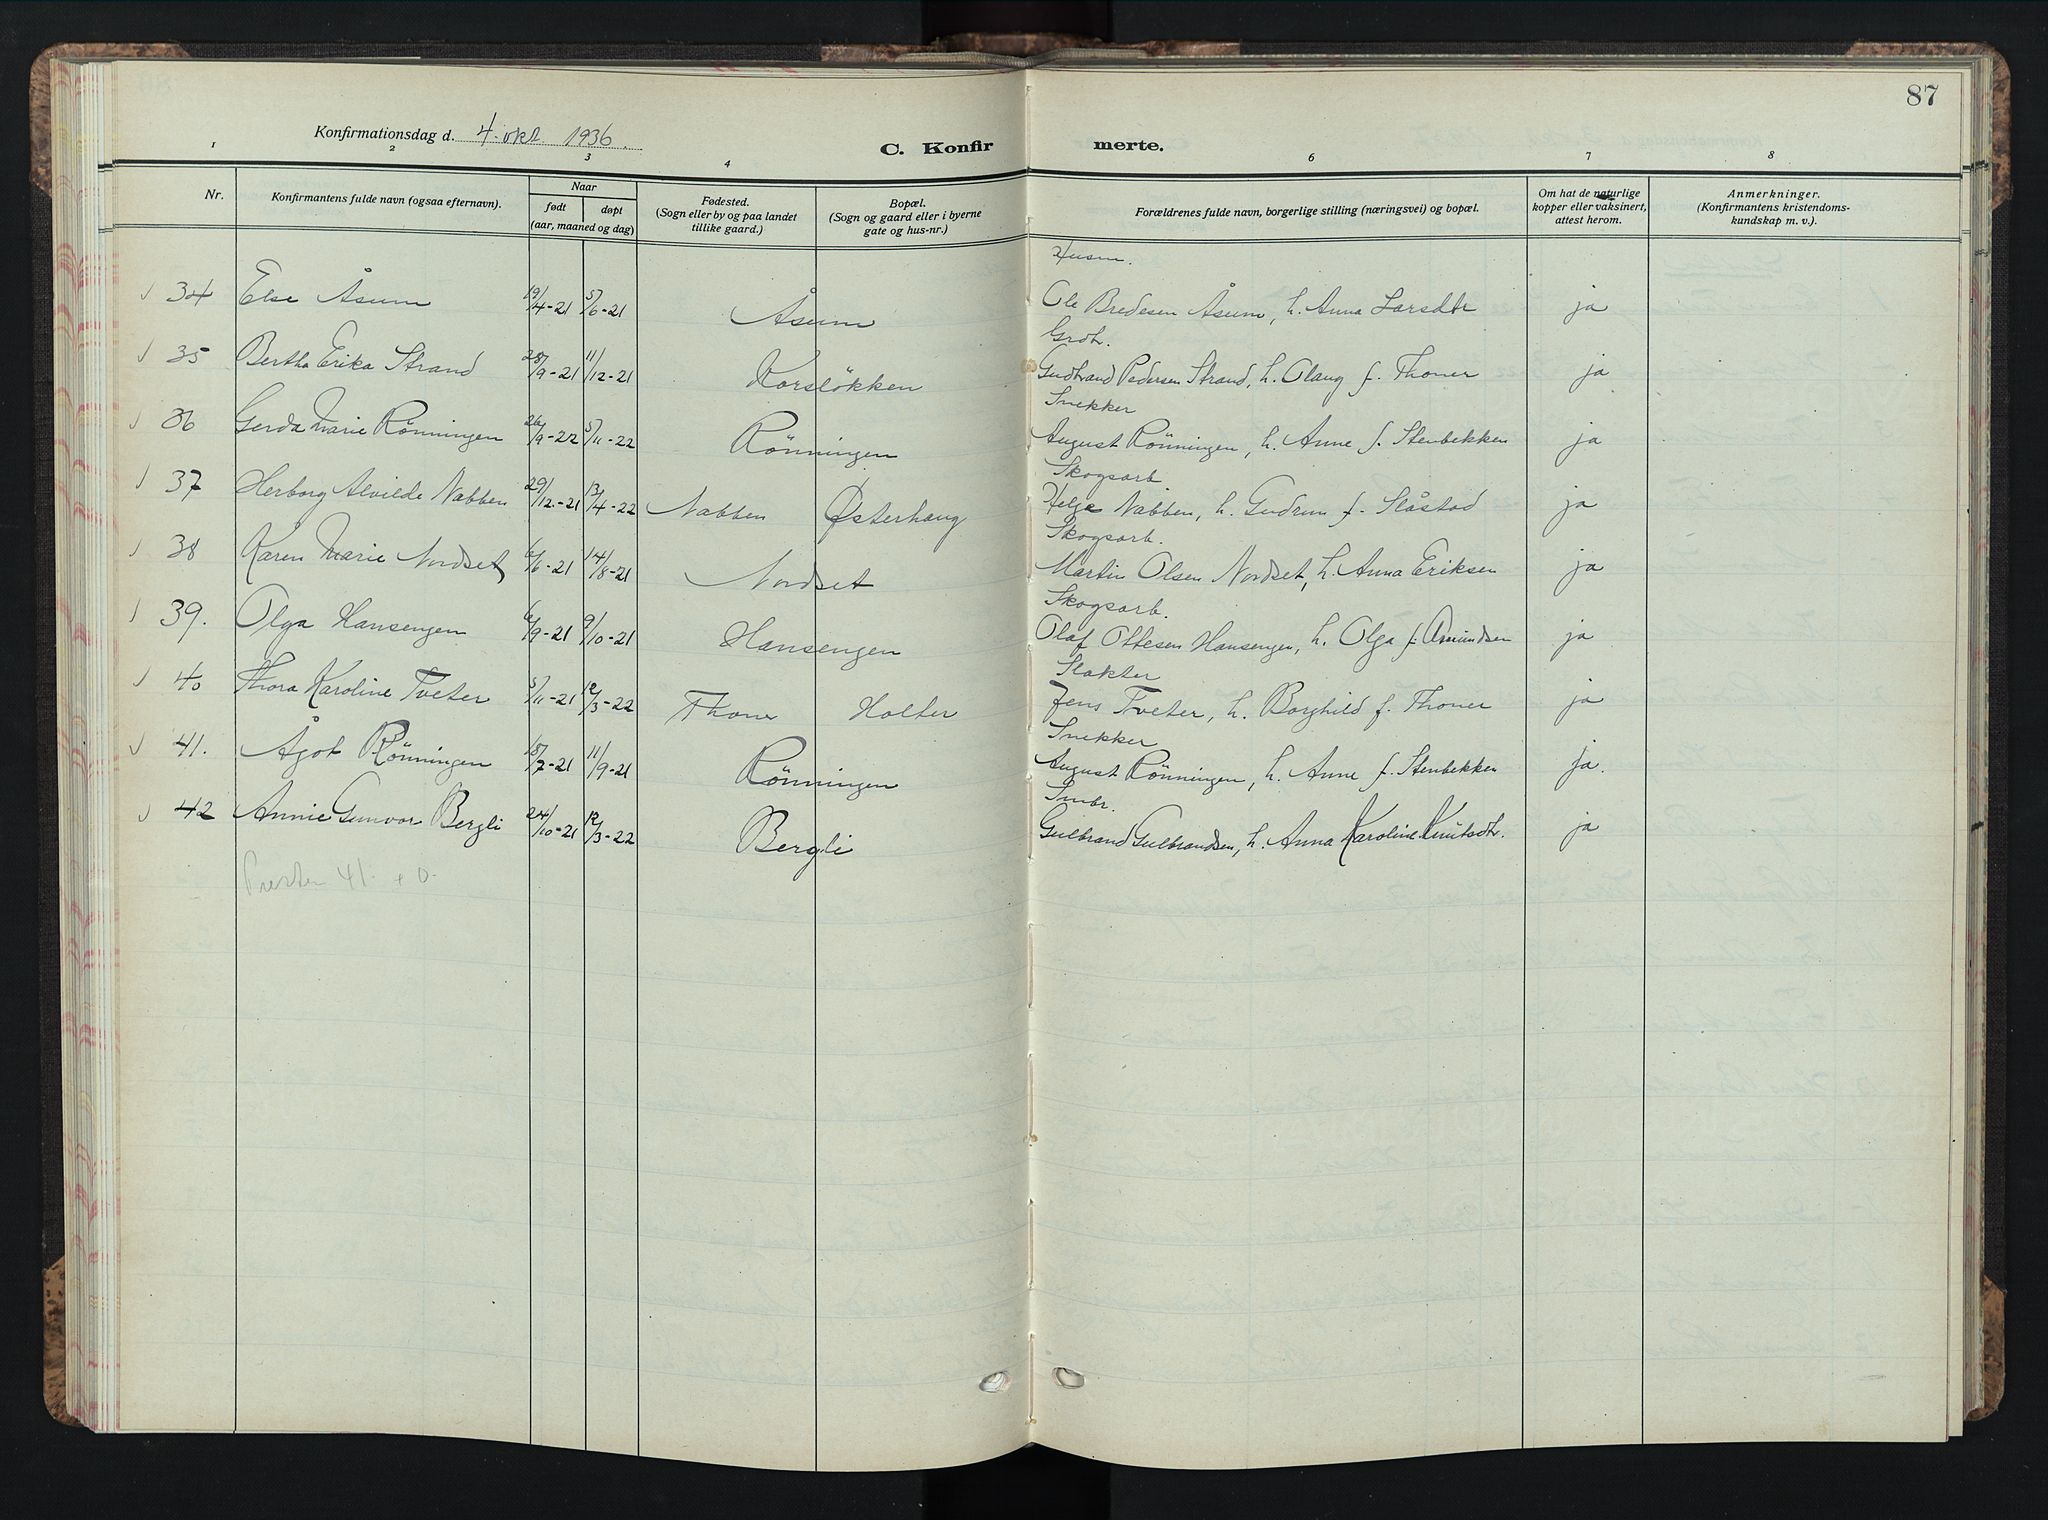 87
Konfirmationsdag d. 4. okt. 1936.
C. Konfirmerte.
1 2 3 4 6 7 8
Nr. Konfirmantens fulde navn (ogsaa efternavn). Naar født døpt (aar, maaned og dag) Fødested. (Sogn eller by og paa landet tillike gaard.) Bopæl. (Sogn og gaard eller i byerne gate og hus-nr.) Forældrenes fulde navn, borgerlige stilling (næringsvei) og bopæl. Om hat de naturlige kopper eller vaksinert, attest herom. Anmerkninger. (Konfirmantens kristendoms-kundskap m. v.).
Husm.
34 Else Åsum 19/4-21 5/6-21 Åsum Ole Bredesen Åsum, h. Anna Larsdtr ja
Grdbr.
35 Bertha Erika Strand 28/9-21 11/12-21 Korslökken Gudbrand Pedersen Strand, h. Olaug f. Thoner ja
Snekker
36 Gerda Marie Rönningen 26/9-22 5/11-22 Rönningen August Rönningen, h. Anne f. Stenbekken ja
Skogsarb.
37 Herborg Alvilde Nabben 29/12-21 13/4-22 Nabben Østerhaug Helge Nabben, h. Gudrun f. Slåstad ja
Skogsarb.
38 Karen Marie Nordset 6/6-21 14/8-21 Nordset Martin Olsen Nordset, h. Anna Eriksen ja
Skogsarb.
39. Olga Hansengen 6/9-21 9/10-21 Hansengen Olaf Ottesen Hansengen, h. Olga f. Amundsen ja
Slakter
40 Thora Karoline Tveter 5/11-21 12/3-22 Thoner Holter Jens Tveter, h. Borghild f. Thoner ja
Snekker
41. Ågot Rönningen 18/7-21 11/9-21 Rönningen August Rönningen, h. Anne f. Stenbekken ja.
Smbr.
42 Annie Gunvor Bergli 24/10-21 12/3-22 Bergli Gulbrand Gulbrandsen, h. Anna Karoline Knutsdtr. ja
41. + 0.